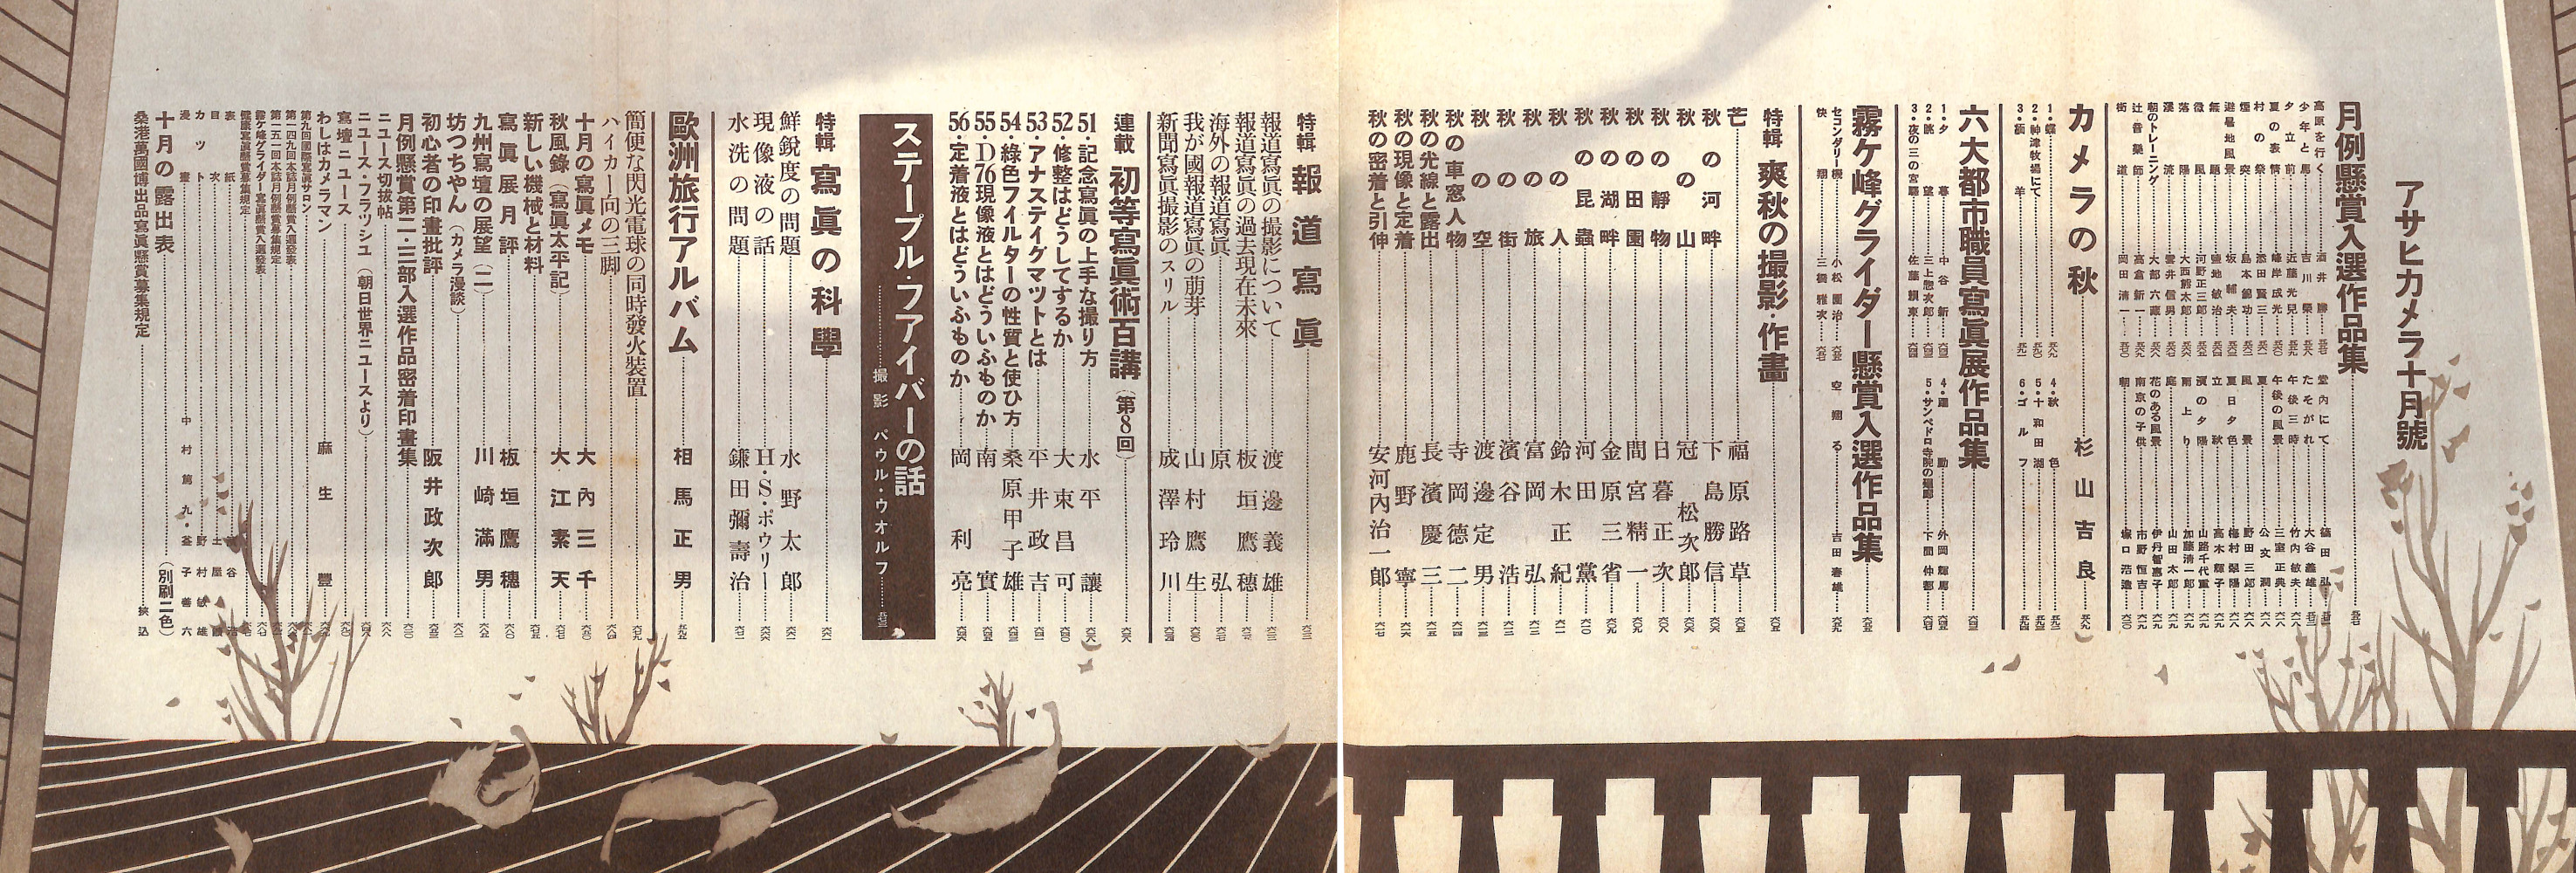 アサヒカメラ十月號
月例懸賞入選作品集
高原を行く 酒井勝
少年と馬 吉川榮
夕立前 近藤光兒
夏の表情 峰岸成光
村の祭 添田賢三
煙突 島本錦功
避暑地風景 坂輔夫
微風 河野正三郎
落陽 大西熊太郎
溪流 雲井信男
朝のトレーニング 大部六藏
辻音樂師 高倉新一
街道 岡田清一
堂内にて 篠田弘
たそがれ 大谷義雄
午後三時 竹内敏夫
午後の風景 三室正典
夏 公文潤
風景 野田三郎
夏日夕色 梅村翠陽
立秋 高木輝子
濱の夕陽 山路千代重
雨上り 加藤清一郎
庭 山田太郎
花のある風景 伊丹智惠子
南京の子供 市野恒吉
朝 塚口浩造
カメラの秋 杉山吉良
1・蝶
2・神津牧場にて
3・緬羊
4・秋色
5・十和田湖
6・ゴルフ
六大都市職員寫眞展作品集
1・夕暮 中谷新
2・眺望 三上惣次郎
3・夜の三の宮驛 佐藤賴東
4・運動 外岡輝馬
5・サンペドロ寺院の廻廊 下間仲都
霧ケ峰グライダー懸賞入選作品集
セコンダリー機 小松園治
快翔 三橋雅次
空翔る 吉田春雄
特輯 爽秋の撮影・作畫
芒 福原路草
秋の河畔 下島勝信
秋の山 冠松次郎
秋の靜物 日暮正次
秋の田園 間宮精一
秋の湖畔 金原三省
秋の昆蟲 河田黨
秋の人 鈴木正紀
秋の旅 富岡弘
秋の街 濱谷浩
秋の空 渡邊定男
秋の車窓人物 寺岡德二
秋の光線と露出 長濱慶三
秋の現像と定着 鹿野寧
秋の密着と引伸 安河內治一郎
特輯 報道寫眞
報道寫眞の撮影について 渡邊義雄
報道寫眞の過去現在未來 板垣鷹穗
海外の報道寫眞 原弘
我が國報道寫眞の萠芽 山村鷹生
新聞寫眞撮影のスリル 成澤玲川
連載 初等寫眞術百講(第8回)
51・記念寫眞の上手な撮り方 水平讓
52・修整はどうしてするか 大束昌可
53・アナスティグマットとは 平井政吉
54・綠色フイルターの性質と使ひ方 桑原甲子雄
55・D76現像液とはどういふものか 南實
56・定着液とはどういふものか 岡利亮
ステープル・フアイバーの話
撮影 パウル・ウオルフ
特輯 寫眞の科學
鮮銳度の問題 水野太郎
現像液の話 H・S・ポウリー
水洗の問題 鎌田彌壽治
歐洲旅行アルバム 相馬正男
簡便な閃光電球の同時發火裝置
ハイカー向の三脚
十月の寫眞メモ 大內三千
秋風錄(寫眞太平記) 大江素天
新しい機械と材料
寫眞展月評 板垣鷹穗
九州寫壇の展望(二) 川崎滿男
坊つちやん(カメラ漫談)
初心者の印畫批評 阪井政次郎
月例懸賞第二・三部入選作品密着印畫集
ニュース切拔帖
ニュース・フラッシュ(朝日世界ニュースより)
寫壇ニュース
わしはカメラマン 麻生豐
第九回國際寫眞サロン
第一四九回本誌月例懸賞入選發表
第一五一回本誌月例懸賞募集規定
霧ケ峰グライダー寫眞懸賞入選發表
健康寫眞懸賞募集規定
表紙
目次
カット 野村敏雄
漫畫 中村篤九・金子善六
十月の露出表(別刷二色)
桑港萬國博出品寫眞懸賞募集規定 挾込